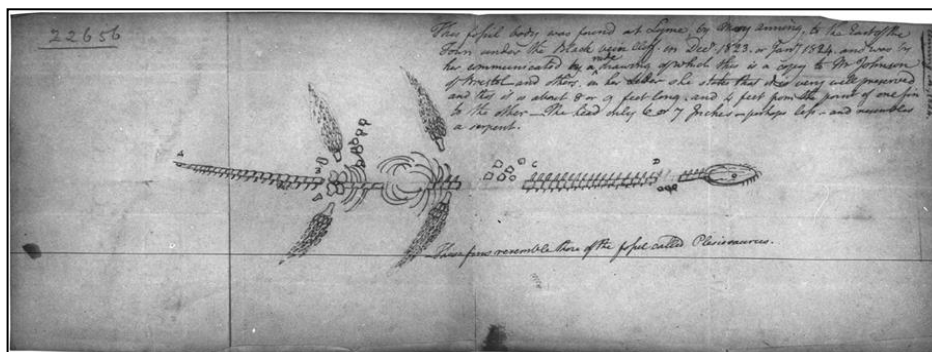 22656
This fossil body was found at Lyme, by Mary Anning, to the East of the
Town under the Black Venn Cliff in Decr 1823. or Jany 1824. and was by
her communicated by a rude drawing of which this is a copy to Mr Johnson
of Bristol and others. in her letter she states that is very well preserved
and that it is about 8 or 9 feet long. and 4 feet from the point of one fin
to the other — The head only 6 or 7 Inches or perhaps less – and resembles
a serpent.
A
B
C
D
These fins resemble those of the fossil called Plesiosaurus.